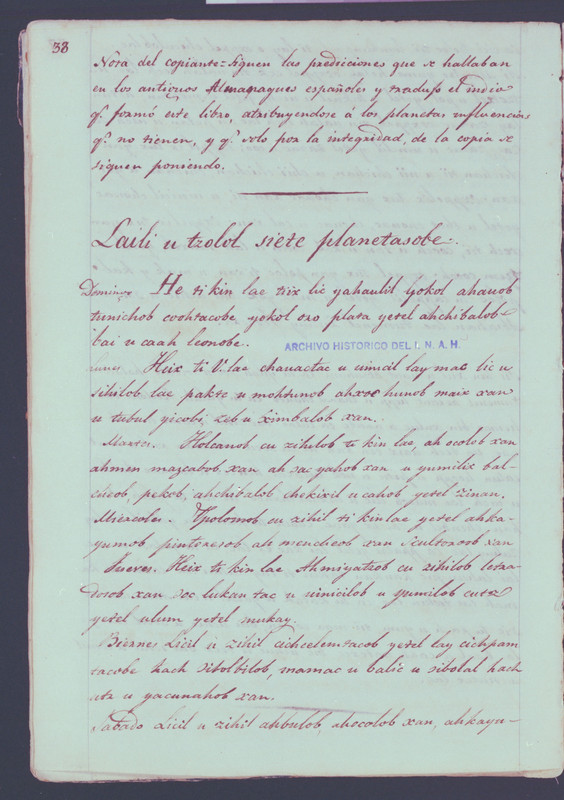 38
Nota del copiante=Siguen las prediciones que se hallaban
en los antiguos Almanaques españoles y tradujo el indio
q.e formó este libro, atribuyendose á los planetas influencias
q.e no tienen, y q.e solo por la integridad, de la copia se
siguen poniendo.
Laili u tzolol siete planetasobe.
Domingo He ti kin lae tiix lic yahaulil yokol ahauob
tunichob cvohtacobe yokol oro plata yetel ahchibalob
bai u caah leonobe.
ARCHIVO HISTORICO DEL I. N. A. H.
Lunes. Heix ti V. lae chauactac u uinicil lay mac lic u
sihilob lae pakte u mohtunob ahxoc hunob maix xan
u tubul yicobi, zeb u ximbalob xan.
Martes. Holcanob cu zihilob ti kin lae, ah ocolob xan
ahmen mazcabob xan ah sac yahob xan u yumilix bal-
cheob, pekob, ahchibalob chekixil u cahob yetel zinan.
Miercoles. Ppolomob cu zihil ti kin lae yetel ahka-
yumob pintoresob ah mencheob xan Scultoroob xan
Jueves. Heix ti kin lae Ahmiyatzob cu zihilob letra-
dosob xan xoc lukantac u uinicilob u yumilob cutz
yetel ulum yetel mukay.
Bierne Licil u zihil cichcelemtacob yetel lay cichpam
tacobe hach sibolbilob, mamac u balic u sibolal hach
utz u yacunahob xan.
Sabado Licil u zihil ahbulob, ahocolob xan, ahkayu-